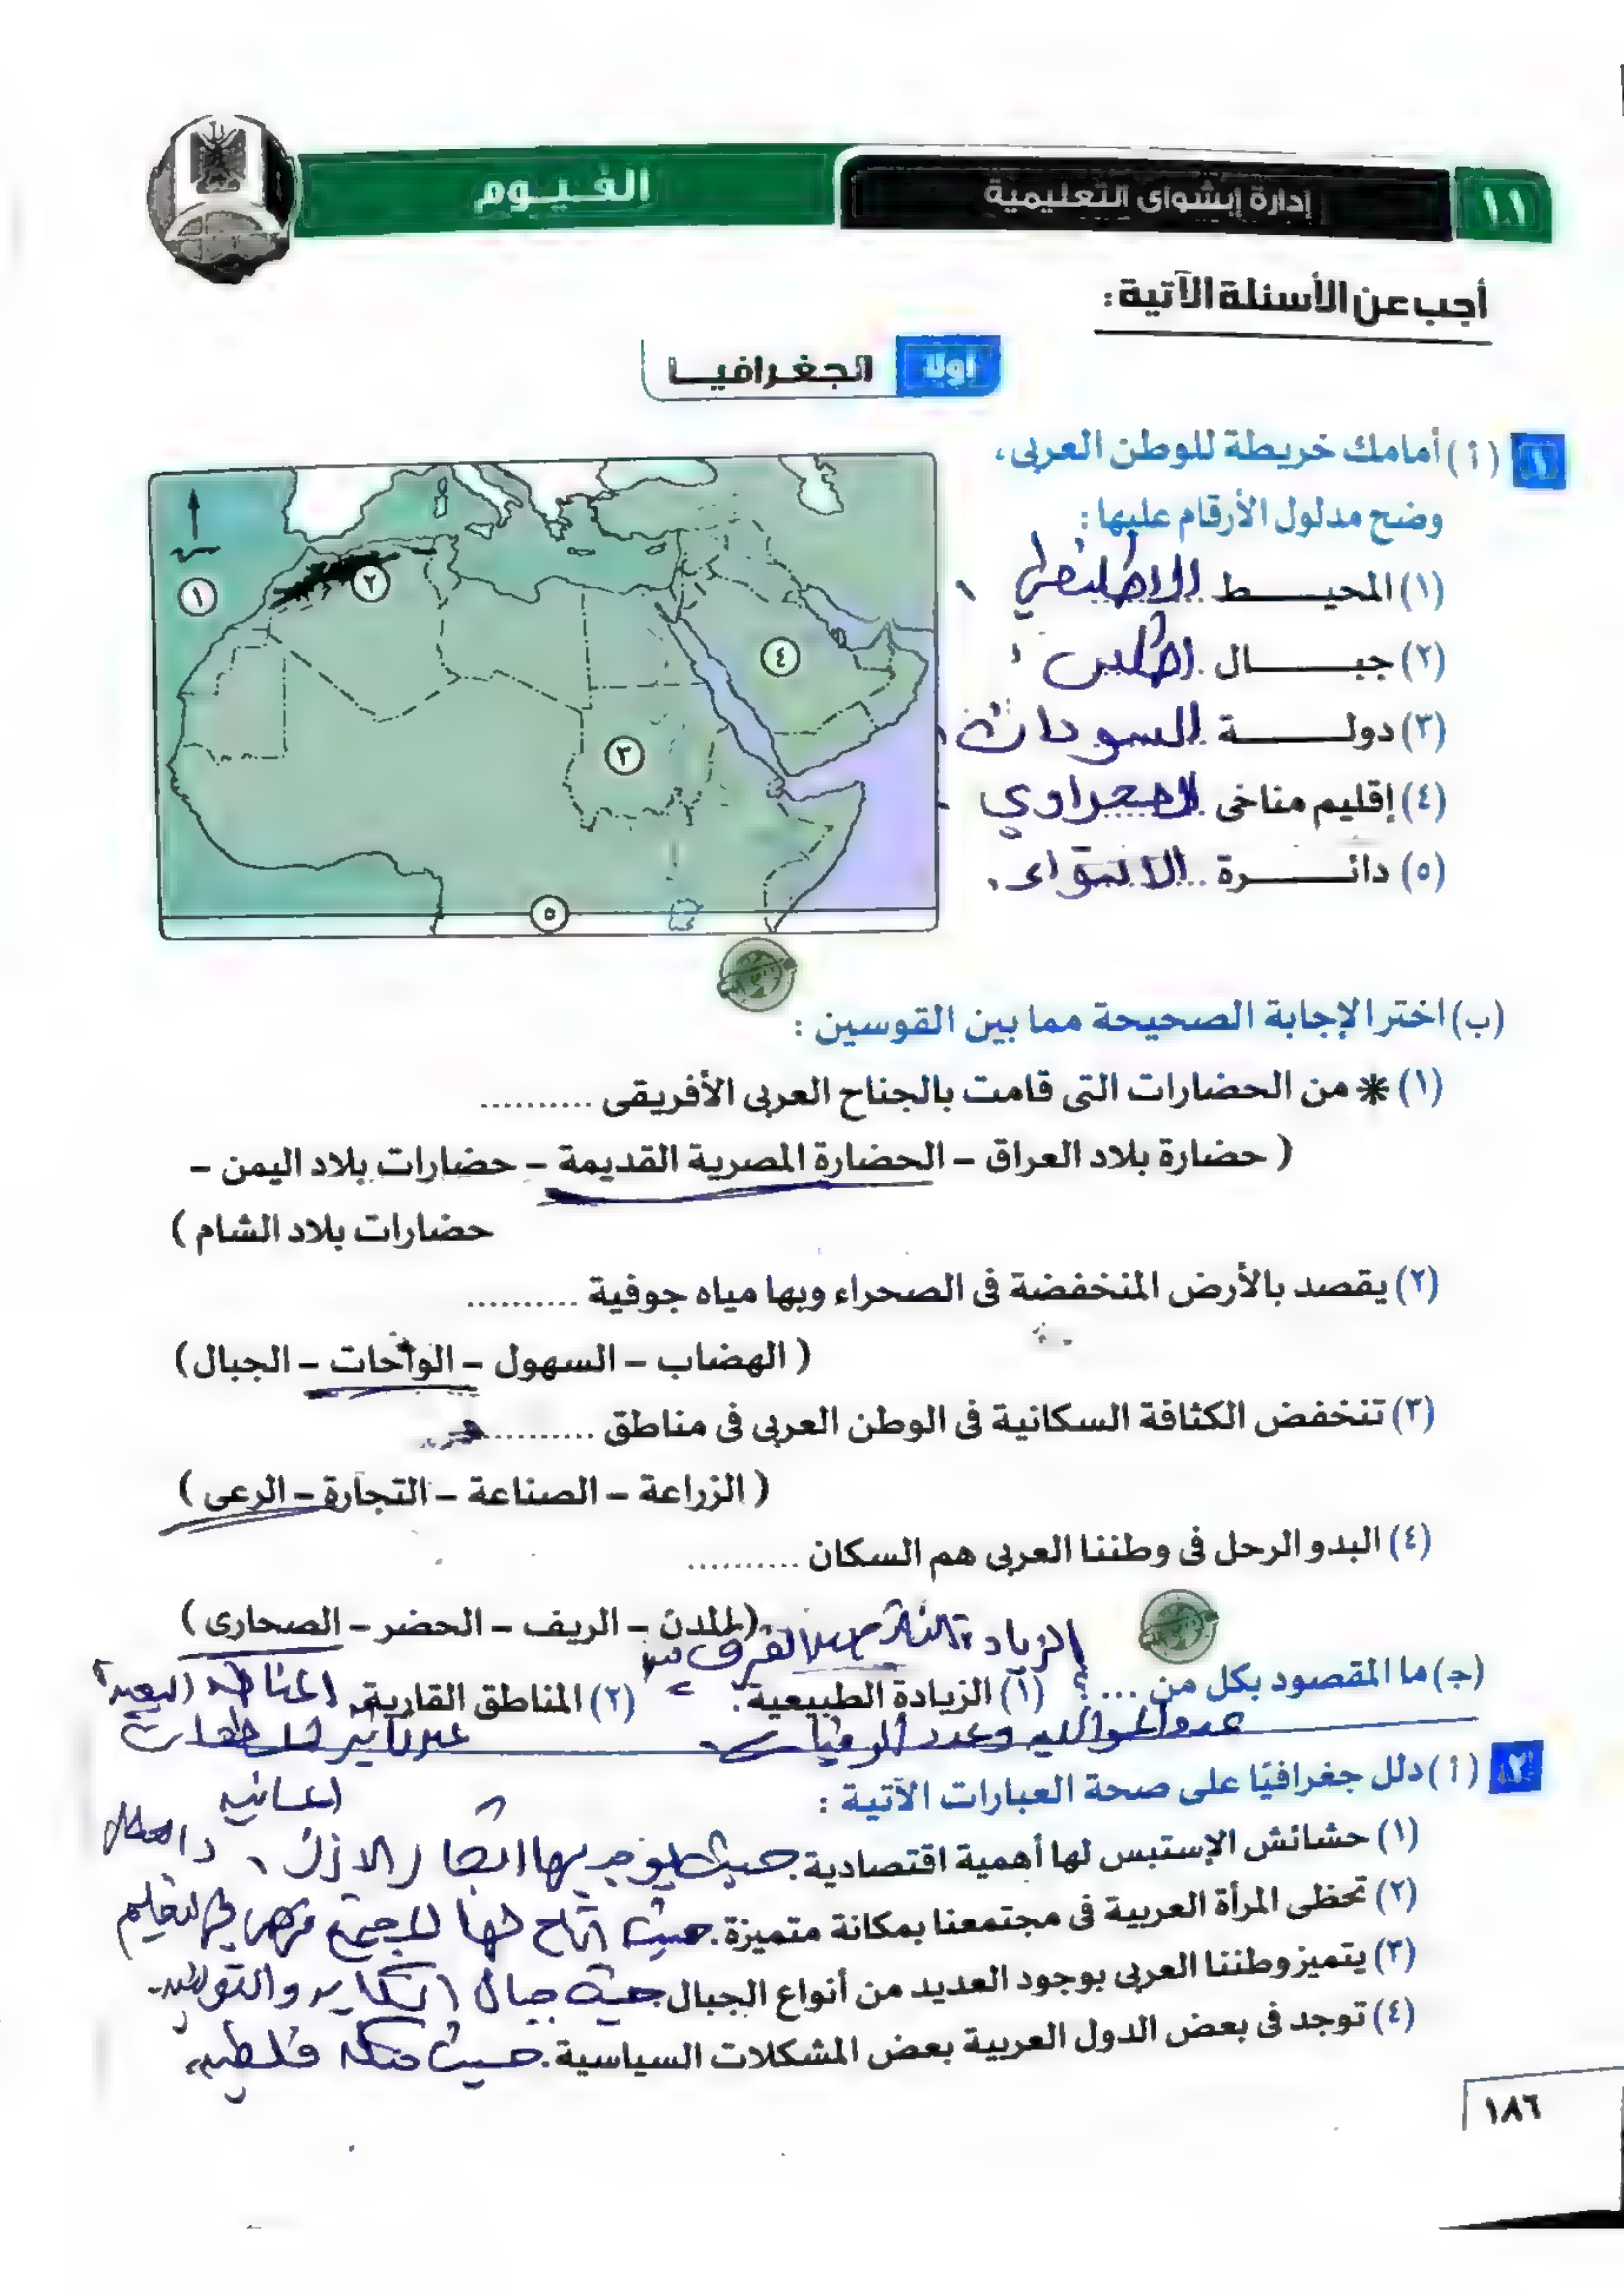 ١١ إدارة إبشواى التعليمية الفيوم
أجب عن الأسئلة الآتية :
أولاً الجغرافيا
١ (أ) أمامك خريطة للوطن العربى،
وضح مدلول الأرقام عليها :
(١) المحيط الاطلنطي
(٢) جبال اطلس
(٣) دولة السودان
(٤) إقليم مناخى الصحراوي
(٥) دائرة الاستواء
١
٢
٣
٤
٥
(ب) اختر الإجابة الصحيحة مما بين القوسين :
(١) * من الحضارات التى قامت بالجناح العربى الأفريقى ..........
( حضارة بلاد العراق – الحضارة المصرية القديمة – حضارات بلاد اليمن –
حضارات بلاد الشام )
(٢) يقصد بالأرض المنخفضة فى الصحراء وبها مياه جوفية ..........
( الهضاب – السهول – الواحات – الجبال)
(٣) تنخفض الكثافة السكانية فى الوطن العربى فى مناطق ..........
( الزراعة – الصناعة – التجارة – الرعى )
(٤) البدو الرحل فى وطننا العربى هم السكان ..........
(المدن – الريف – الحضر – الصحارى )
الفرق بين
(ج) ما المقصود بكل من ... ؟ (١) الزيادة الطبيعية. (٢) المناطق القارية. المناطق البعيدة
عدد المواليد وعدد الوفيات عن تأثير المسطحات
المائية
٢ (أ) دلل جغرافيًا على صحة العبارات الآتية :
(١) حشائش الإستبس لها أهمية اقتصادية. حيث يوجد بها اشجار الارز
(٢) تحظى المرأة العربية فى مجتمعنا بمكانة متميزة. حيث اتاح لها المجتمع فرص في التعليم
(٣) يتميز وطننا العربى بوجود العديد من أنواع الجبال. جبال
(٤) توجد فى بعض الدول العربية بعض المشكلات السياسية. حيث مشكلة فلسطين
١٨٦